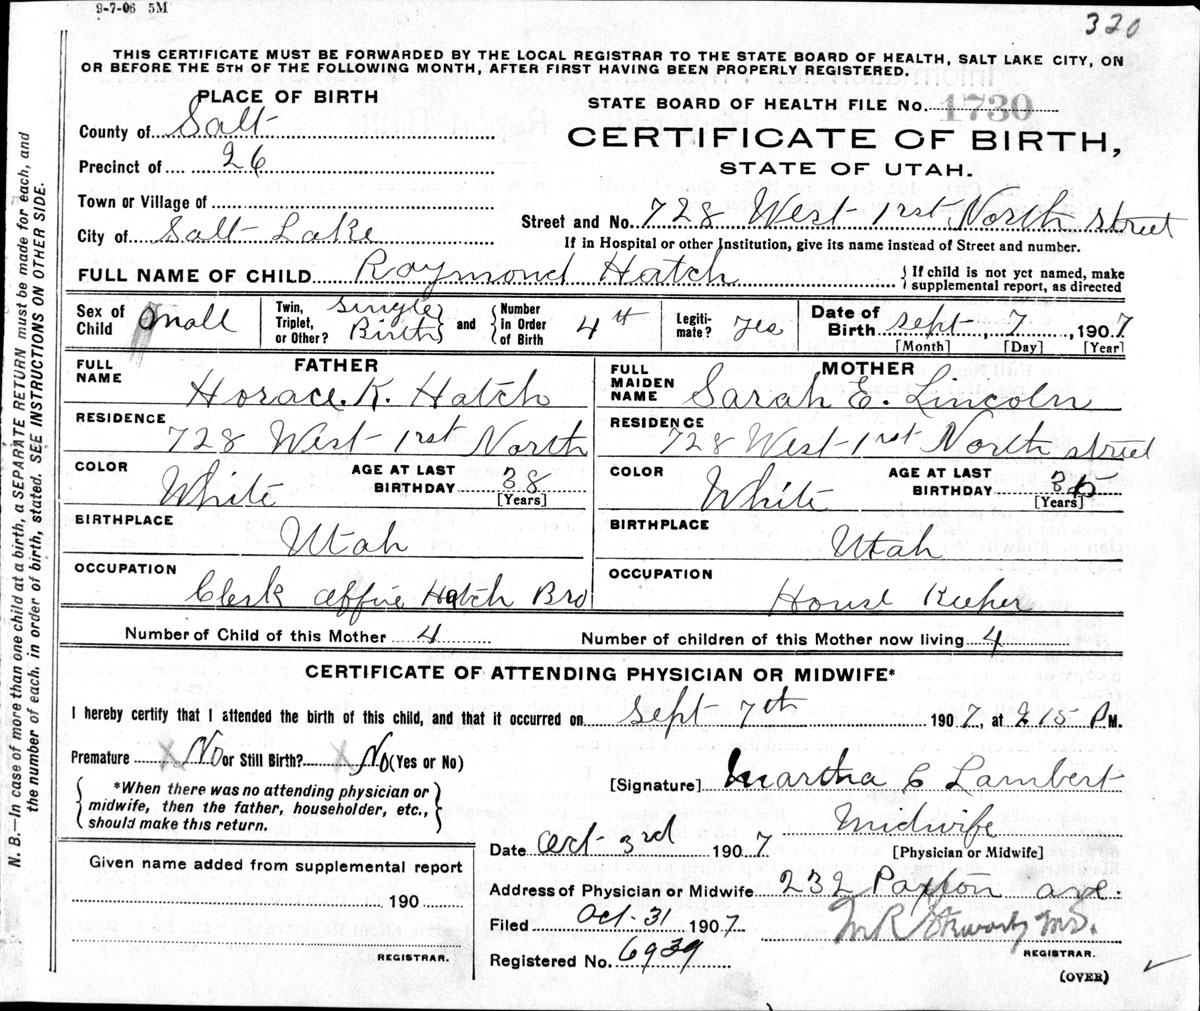 9-7-06 5M
320
THIS CERTIFICATE MUST BE FORWARDED BY THE LOCAL REGISTRAR TO THE STATE BOARD OF HEALTH, SALT LAKE CITY, ON
OR BEFORE THE 5TH OF THE FOLLOWING MONTH, AFTER FIRST HAVING BEEN PROPERLY REGISTERED.
N. B.—In case of more than one child at a birth, a SEPARATE RETURN must be made for each, and
the number of each, in order of birth, stated. SEE INSTRUCTIONS ON OTHER SIDE.
PLACE OF BIRTH
STATE BOARD OF HEALTH FILE No. 1730
County of Salt
CERTIFICATE OF BIRTH,
Precinct of 26
STATE OF UTAH.
Town or Village of
Street and No. 728 West 1rst North street
City of Salt Lake
If in Hospital or other Institution, give its name instead of Street and number.
FULL NAME OF CHILD Raymond Hatch
{If child is not yet named, make
supplemental report, as directed
Sex of Child mall
Twin, Triplet, or Other? Single Birth and
Number in Order of Birth 4th
Legitimate? yes
Date of Birth Sept 7, 1907
[Month] [Day] [Year]
FATHER
MOTHER
FULL NAME Horace. K. Hatch
FULL MAIDEN NAME Sarah E. Lincoln
RESIDENCE 728 West 1rst North
RESIDENCE 728 West 1rst North street
COLOR White AGE AT LAST BIRTHDAY 38 [Years]
COLOR White AGE AT LAST BIRTHDAY [Years]
BIRTHPLACE Utah
BIRTHPLACE Utah
OCCUPATION Clerk Hatch Bro
OCCUPATION House Keeper
Number of Child of this Mother 4
Number of children of this Mother now living 4
CERTIFICATE OF ATTENDING PHYSICIAN OR MIDWIFE*
I hereby certify that I attended the birth of this child, and that it occurred on Sept 7th 1907, at 2 15 P M.
Premature X No or Still Birth? X No (Yes or No)
*When there was no attending physician or
midwife, then the father, householder, etc.,
should make this return.
[Signature] Martha E Lambert
Midwife
[Physician or Midwife]
Date Oct 3rd 1907
Address of Physician or Midwife 232 Paxton ave.
Given name added from supplemental report
190
REGISTRAR.
Filed Oct. 31 1907
M R Stewart M.D.
REGISTRAR.
Registered No. 6939
(OVER)